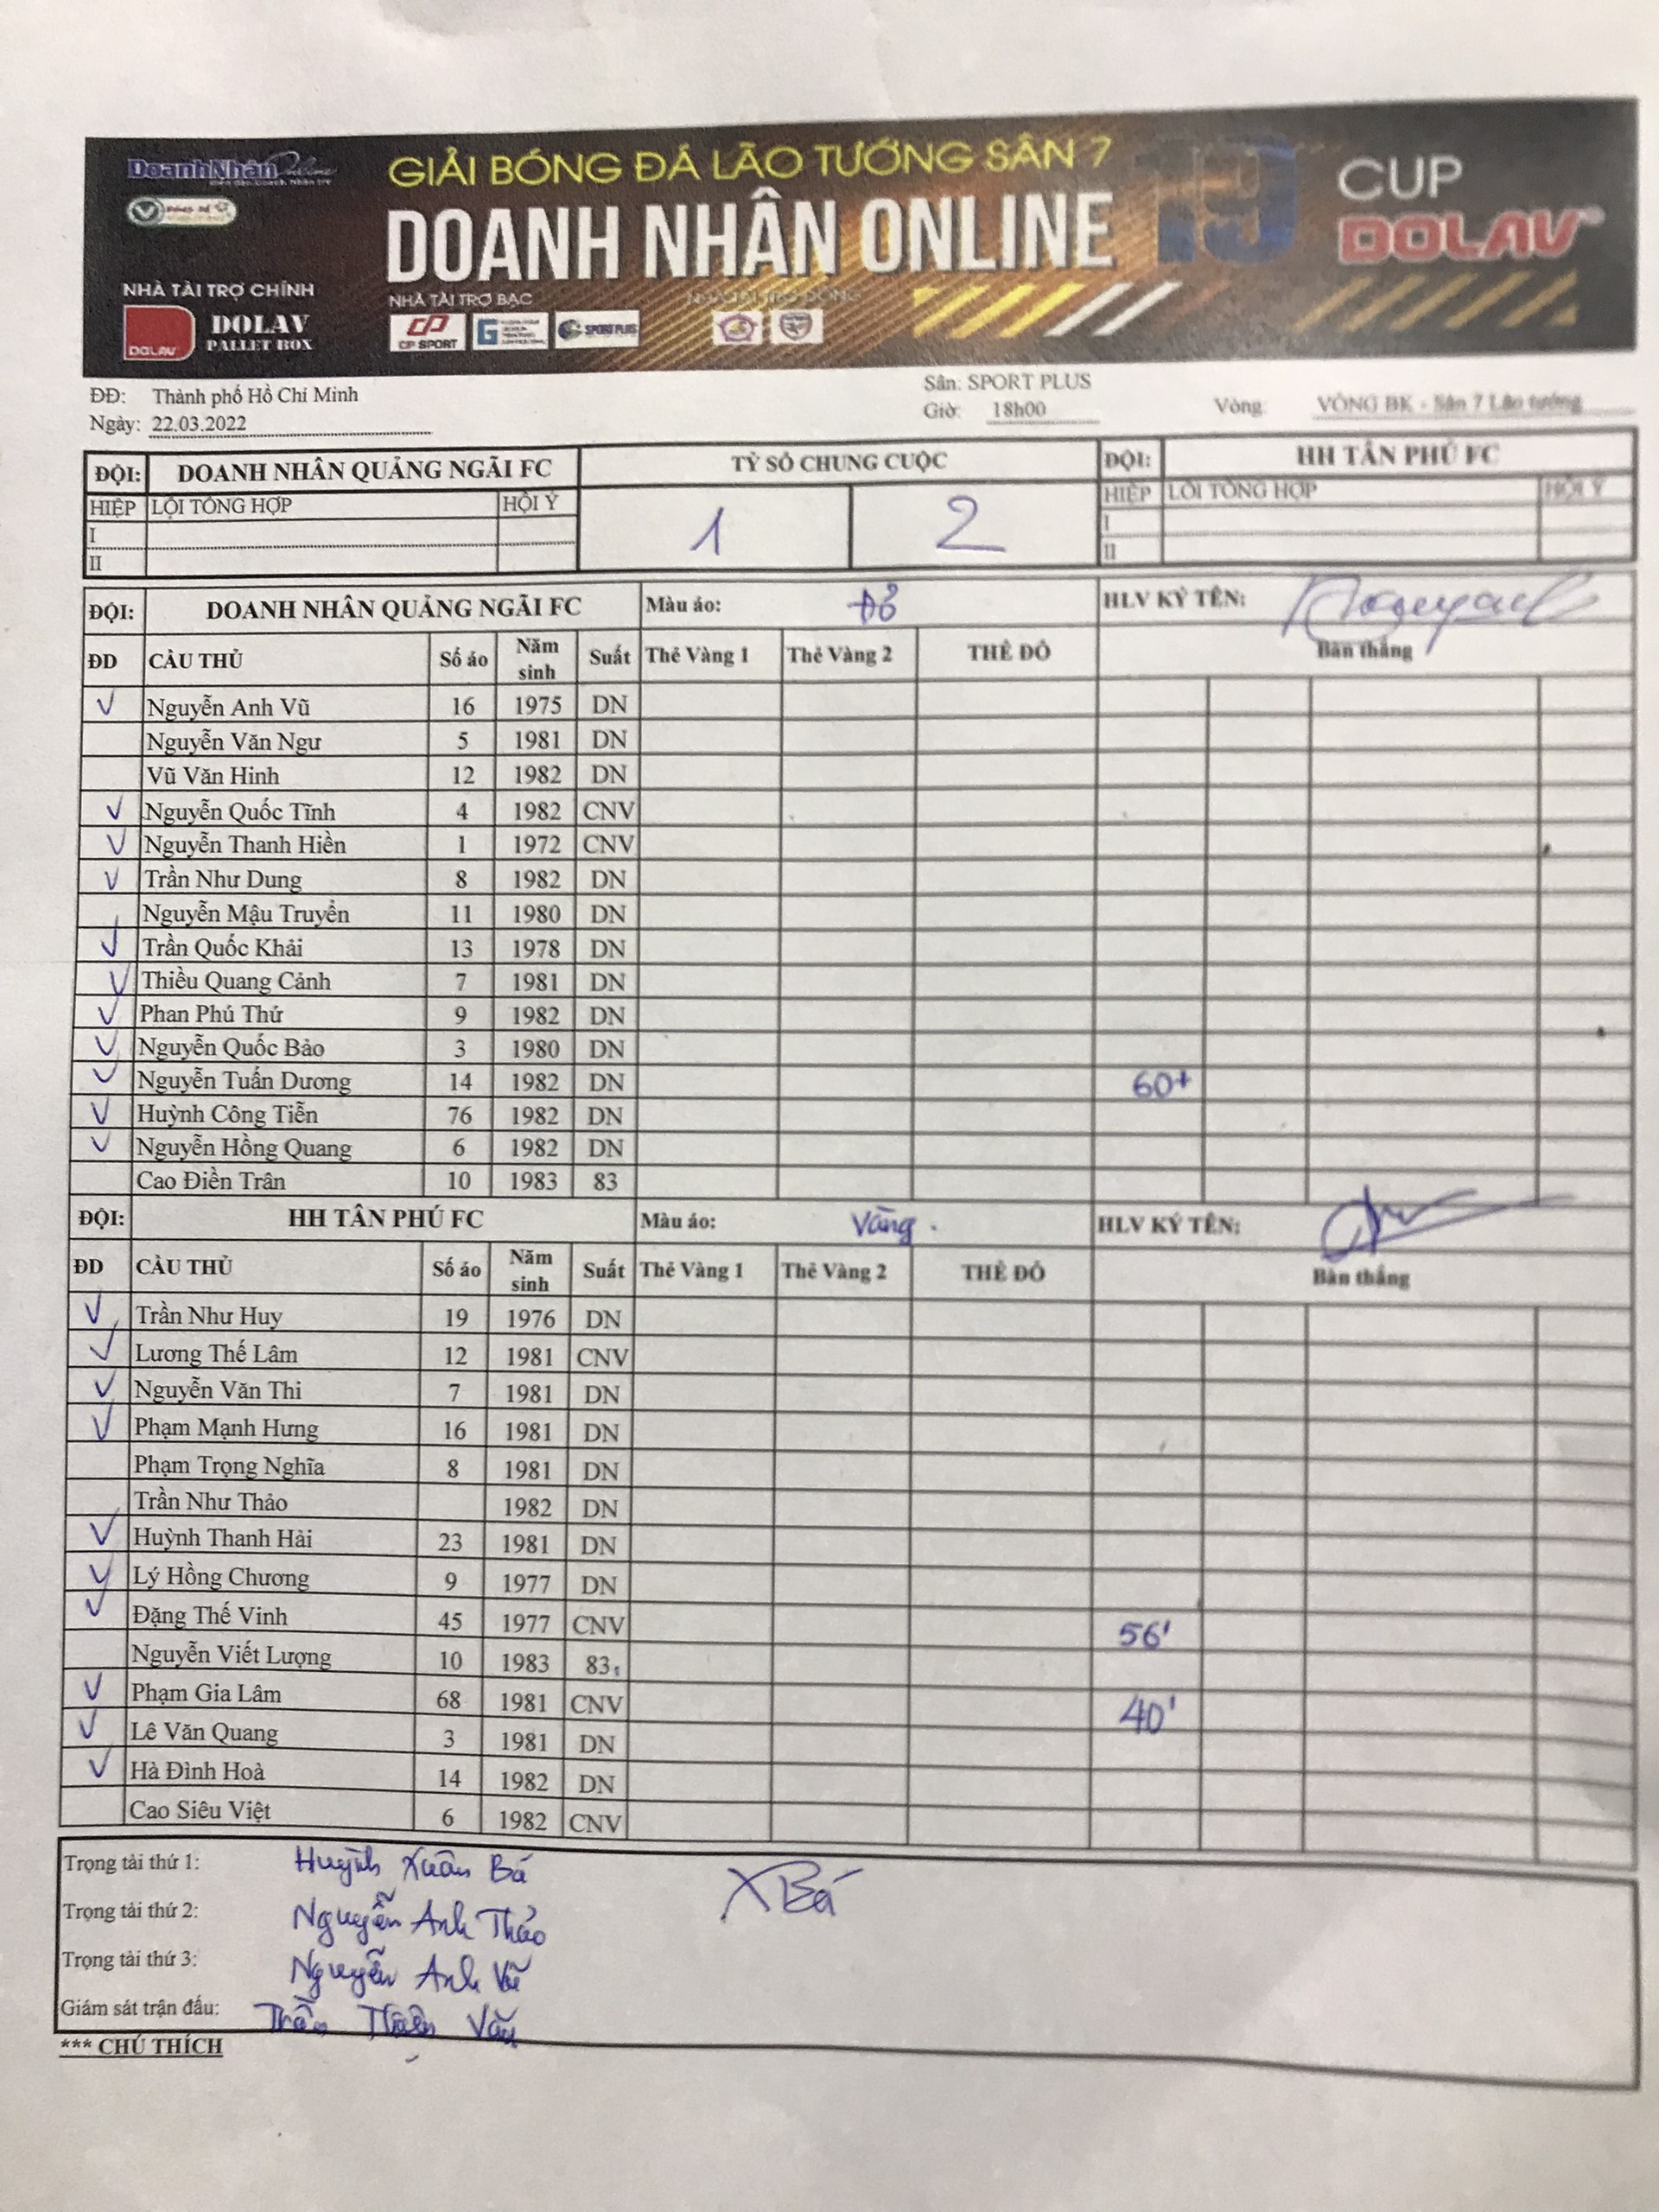 DoanhNhân Online
GIẢI BÓNG ĐÁ LÃO TƯỚNG SÂN 7
DOANH NHÂN ONLINE 19
CUP
DOLAV
NHÀ TÀI TRỢ CHÍNH
DOLAV
DOLAV
PALLET BOX
NHÀ TÀI TRỢ BẠC
CP SPORT
SPORT PLUS
NHÀ TÀI TRỢ ĐỒNG
ĐĐ: Thành phố Hồ Chí Minh
Sân: SPORT PLUS
Ngày: 22.03.2022
Giờ: 18h00
Vòng: VÒNG BK - Sân 7 Lão tướng
ĐỘI: DOANH NHÂN QUẢNG NGÃI FC TỶ SỐ CHUNG CUỘC ĐỘI: HH TÂN PHÚ FC
HIỆP LỖI TỔNG HỢP HỘI Ý 1 2 HIỆP LỖI TỔNG HỢP HỘI Ý
I I
II II
ĐỘI: DOANH NHÂN QUẢNG NGÃI FC Màu áo: Đỏ HLV KÝ TÊN:
ĐD CẦU THỦ Số áo Năm sinh Suất Thẻ Vàng 1 Thẻ Vàng 2 THẺ ĐỎ Bàn thắng
V Nguyễn Anh Vũ 16 1975 DN
Nguyễn Văn Ngư 5 1981 DN
Vũ Văn Hinh 12 1982 DN
V Nguyễn Quốc Tĩnh 4 1982 CNV
V Nguyễn Thanh Hiền 1 1972 CNV
V Trần Như Dung 8 1982 DN
Nguyễn Mậu Truyền 11 1980 DN
V Trần Quốc Khải 13 1978 DN
V Thiều Quang Cảnh 7 1981 DN
V Phan Phú Thứ 9 1982 DN
V Nguyễn Quốc Bảo 3 1980 DN
V Nguyễn Tuấn Dương 14 1982 DN 60+
V Huỳnh Công Tiễn 76 1982 DN
V Nguyễn Hồng Quang 6 1982 DN
Cao Điền Trân 10 1983 83
ĐỘI: HH TÂN PHÚ FC Màu áo: Vàng. HLV KÝ TÊN:
ĐD CẦU THỦ Số áo Năm sinh Suất Thẻ Vàng 1 Thẻ Vàng 2 THẺ ĐỎ Bàn thắng
V Trần Như Huy 19 1976 DN
V Lương Thế Lâm 12 1981 CNV
V Nguyễn Văn Thi 7 1981 DN
V Phạm Mạnh Hưng 16 1981 DN
Phạm Trọng Nghĩa 8 1981 DN
Trần Như Thảo 1982 DN
V Huỳnh Thanh Hải 23 1981 DN
V Lý Hồng Chương 9 1977 DN
V Đặng Thế Vinh 45 1977 CNV 56'
Nguyễn Viết Lượng 10 1983 83
V Phạm Gia Lâm 68 1981 CNV 40'
V Lê Văn Quang 3 1981 DN
V Hà Đình Hoà 14 1982 DN
Cao Siêu Việt 6 1982 CNV
Trọng tài thứ 1: Huỳnh Xuân Bá XBá
Trọng tài thứ 2: Nguyễn Anh Thảo
Trọng tài thứ 3: Nguyễn Anh Vũ
Giám sát trận đấu: Trần Thiện Văn
*** CHÚ THÍCH